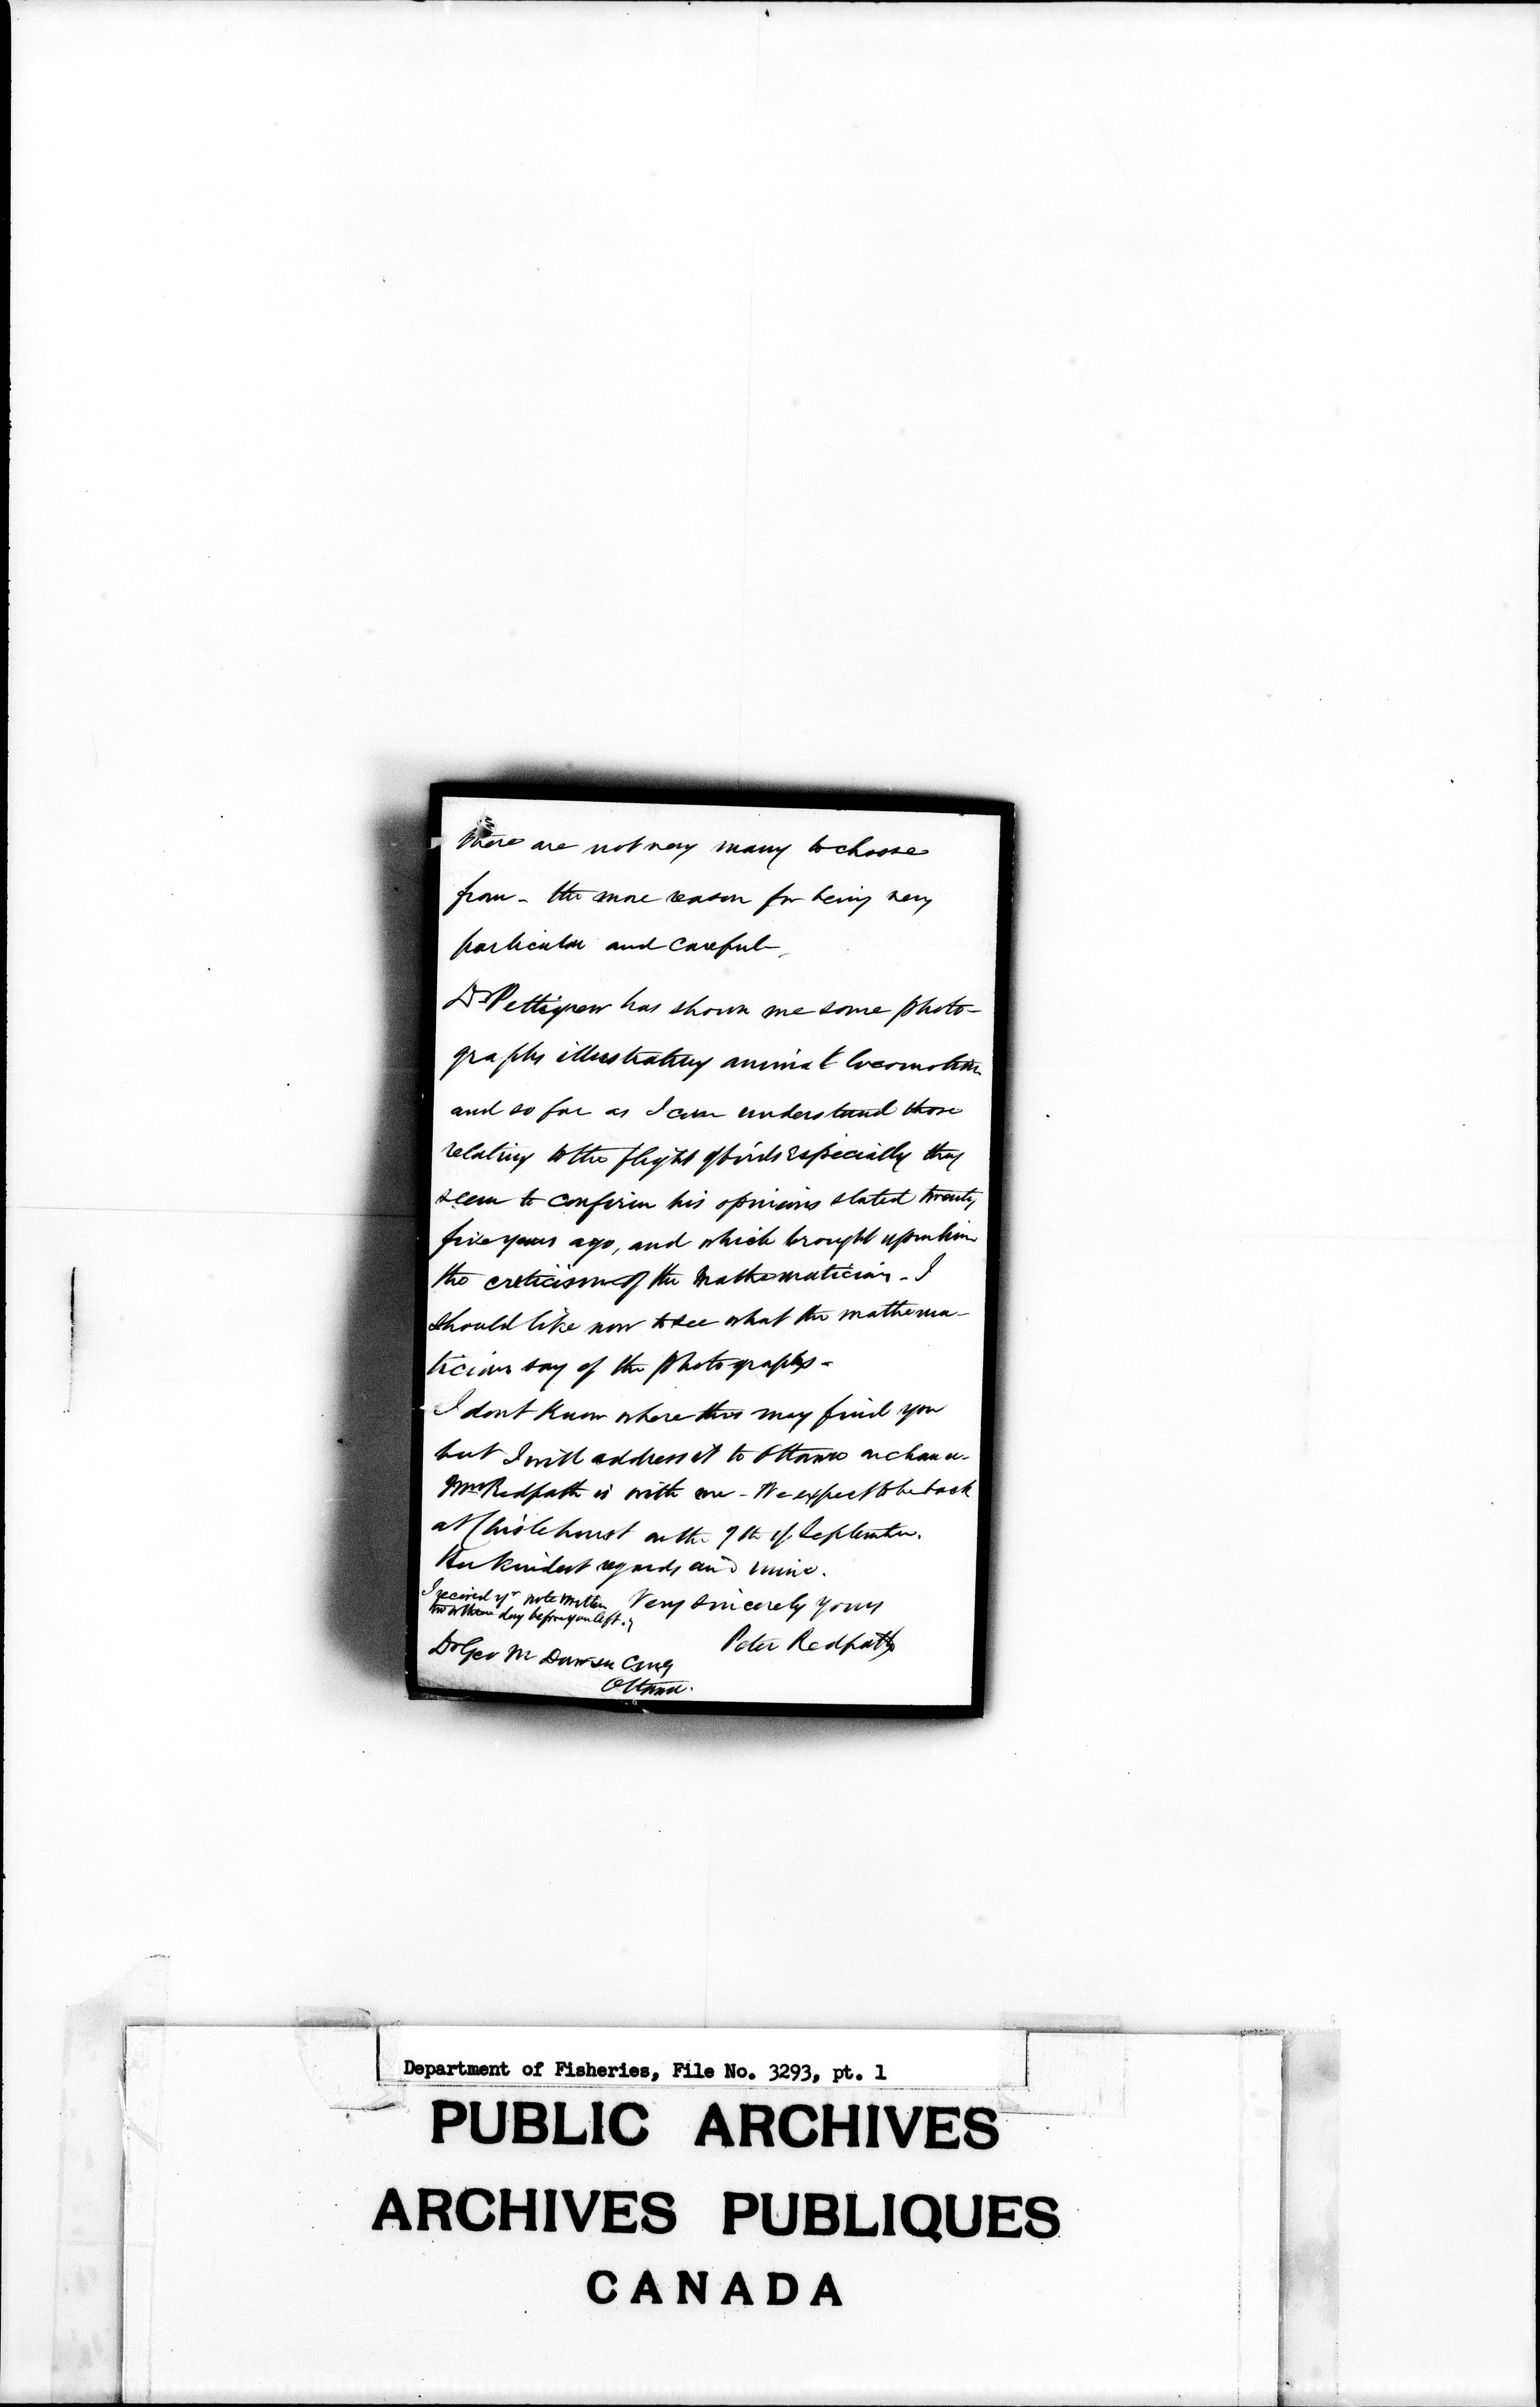 there are not very many to choose
from - the more reason for being very
particular and careful.
Dr Pettigrew has shown me some photo-
graphs illustrating animal locomotion
and so far as I can understand those
relating to the flight of birds especially they
seem to confirm his opinions stated twenty
five years ago, and which brought upon him
the criticism of the Mathematicians - I
should like now to see what the mathema-
ticians say of the photographs -
I dont know where this may find you
but I will address it to Ottawa on chance.
Mrs Redpath is with me - We expect to be back
at Chislehurst on the 9th of September.
Her kindest regards and mine.
I received yr note written
two or three days before you left.
Very sincerely yours
Peter Redpath
Dr Geo M Dawson CMG
Ottawa.
Department of Fisheries, File No. 3293, pt. 1
PUBLIC ARCHIVES
ARCHIVES PUBLIQUES
CANADA